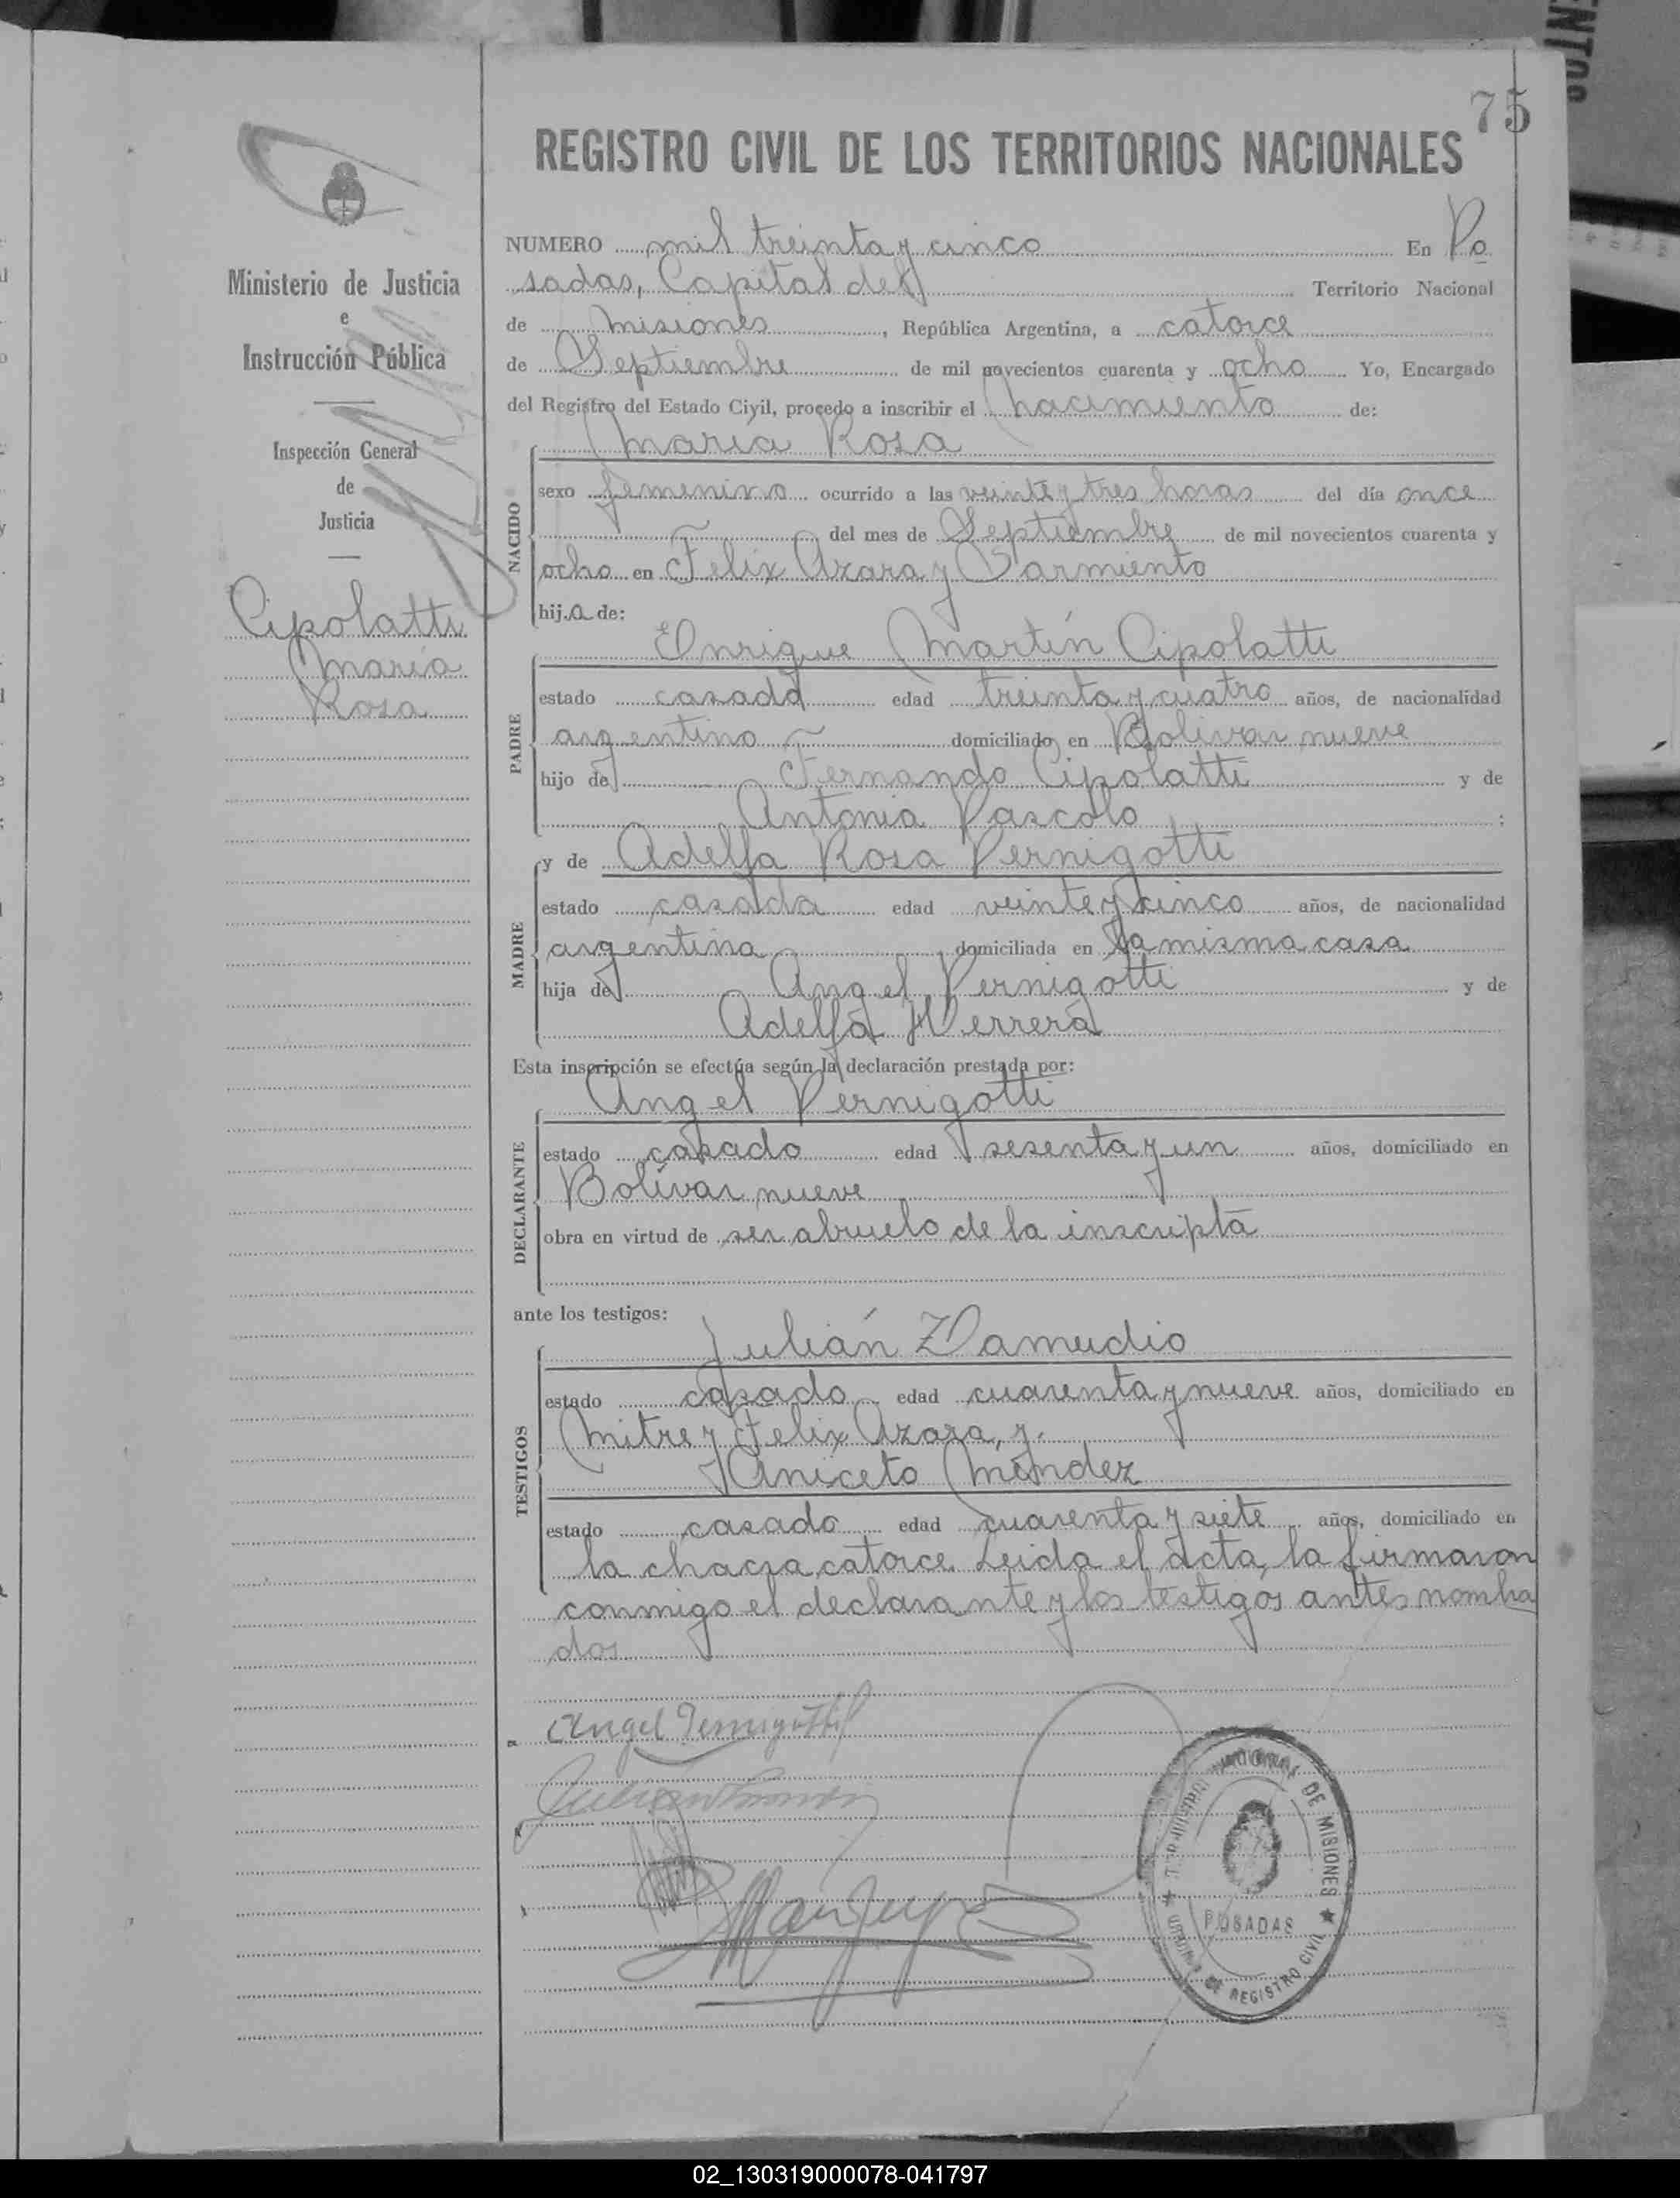 75
REGISTRO CIVIL DE LOS TERRITORIOS NACIONALES
Ministerio de Justicia
e
Instrucción Pública
Inspección General
de
Justicia
Cipolatti
María
Rosa
NUMERO mil treinta y cinco En Po
sadas, Capital del Territorio Nacional
de Misiones, República Argentina, a catorce
de Septiembre de mil novecientos cuarenta y ocho Yo, Encargado
del Registro del Estado Civil, procedo a inscribir el nacimiento de:
María Rosa
NACIDO
sexo femenino ocurrido a las veinte y tres horas del día once
del mes de Septiembre de mil novecientos cuarenta y
ocho en Felix Azara y Sarmiento
hija de:
Enrique Martín Cipolatti
PADRE
estado casado edad treinta y cuatro años, de nacionalidad
argentino domiciliado en Bolivar nueve
hijo de Fernando Cipolatti y de
Antonia Pascolo ;
MADRE
y de Adelfa Rosa Pernigotti
estado casada edad veinte y cinco años, de nacionalidad
argentina domiciliada en la misma casa
hija de Angel Pernigotti y de
Adelfa Herrera
Esta inscripción se efectúa según la declaración prestada por:
Angel Pernigotti
DECLARANTE
estado casado edad sesenta y un años, domiciliado en
Bolívar nueve
obra en virtud de ser abuelo de la inscripta
ante los testigos:
Julián Zamudio
TESTIGOS
estado casado edad cuarenta y nueve años, domiciliado en
Mitre y Felix Azara, y.
Aniceto Méndez
estado casado edad cuarenta y siete años, domiciliado en
la chacra catorce. Leida el acta, la firmaron
conmigo el declarante y los testigos antes nombra
dos.
Angel Pernigotti
Julian
TERRITORIO NACIONAL DE MISIONES
POSADAS
OFICINA DE REGISTRO CIVIL
02_130319000078-041797